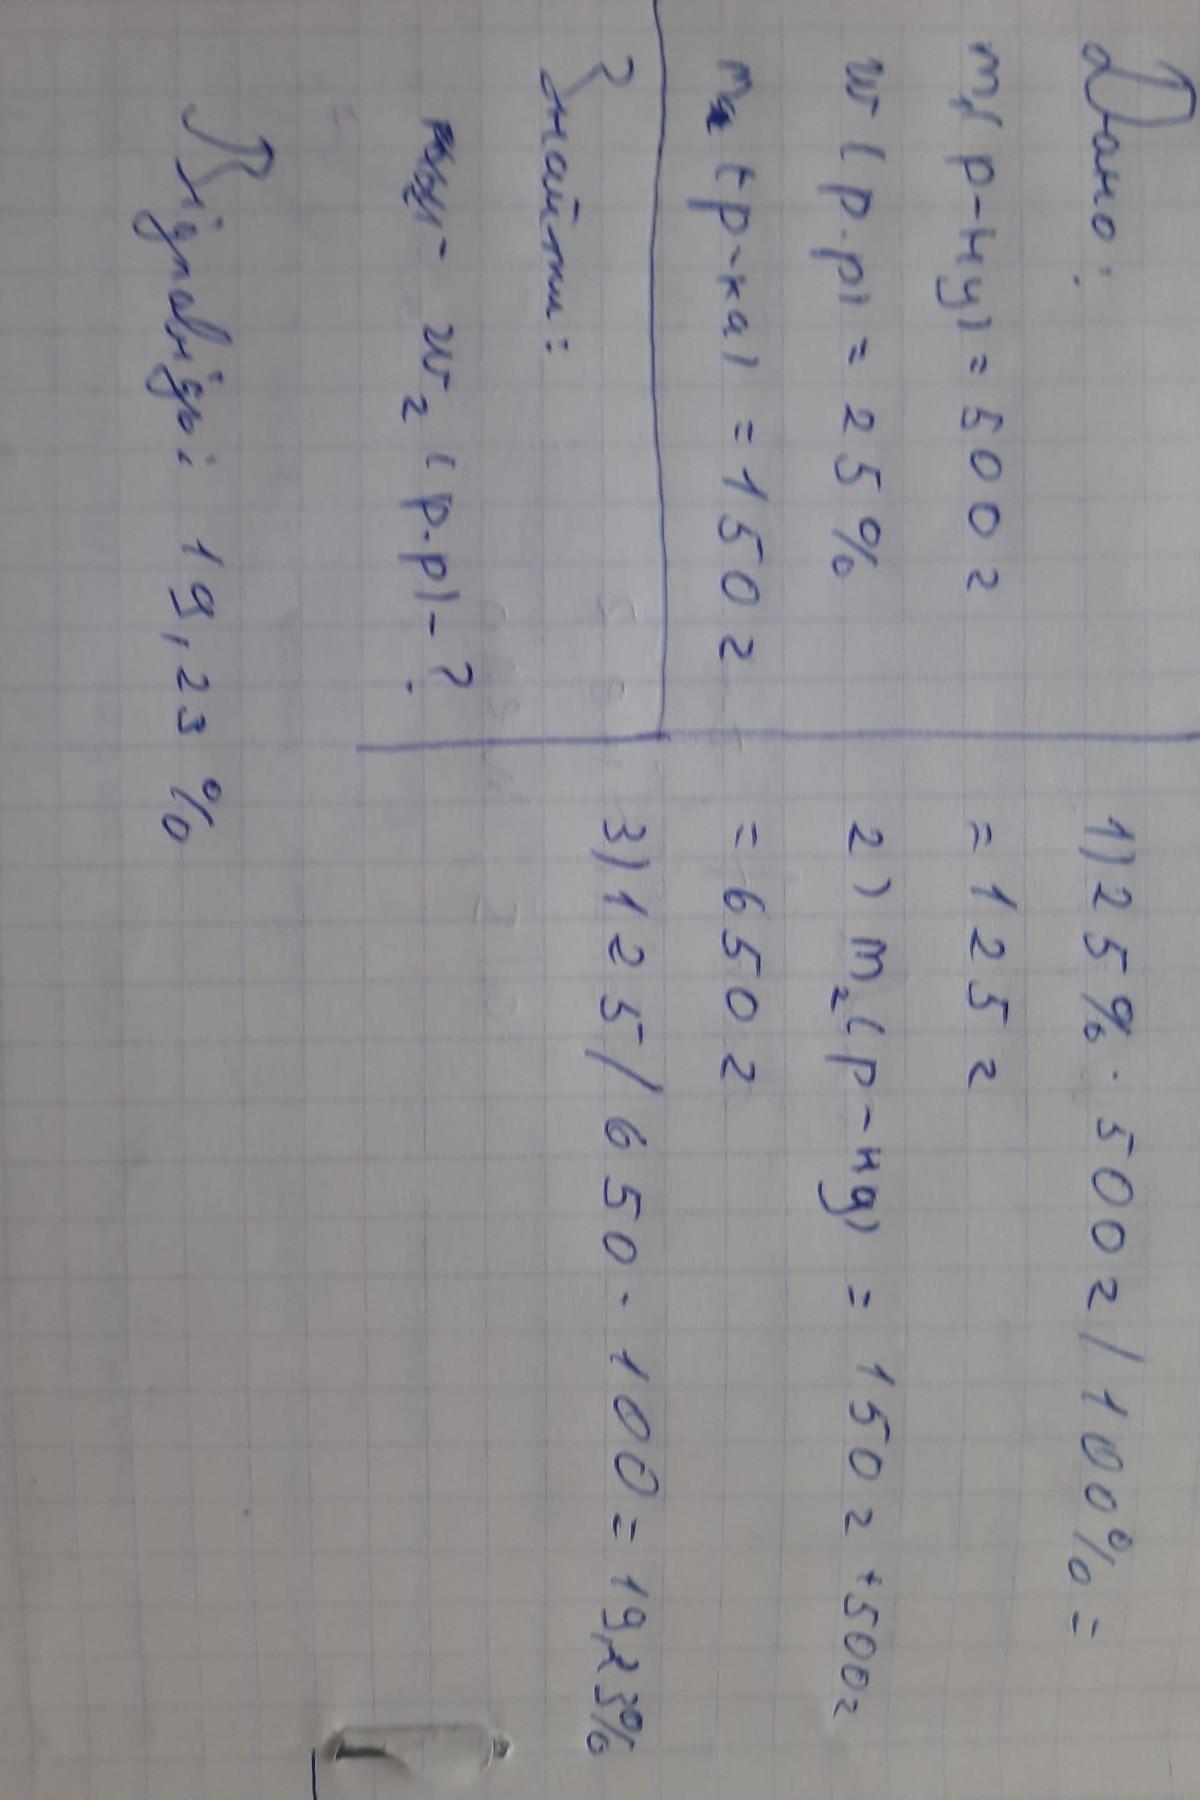 Дано:
m₁(р-ну) = 500 г
w (р.р) = 25 %
m (р-ка) = 150 г
Знайти:
w₂ (р.р) - ?
1) 25% · 500 г / 100% =
= 125 г
2) m₂ (р-ну) = 150 г + 500 г
= 650 г
3) 125 / 650 · 100 = 19,23%
Відповідь: 19,23 %